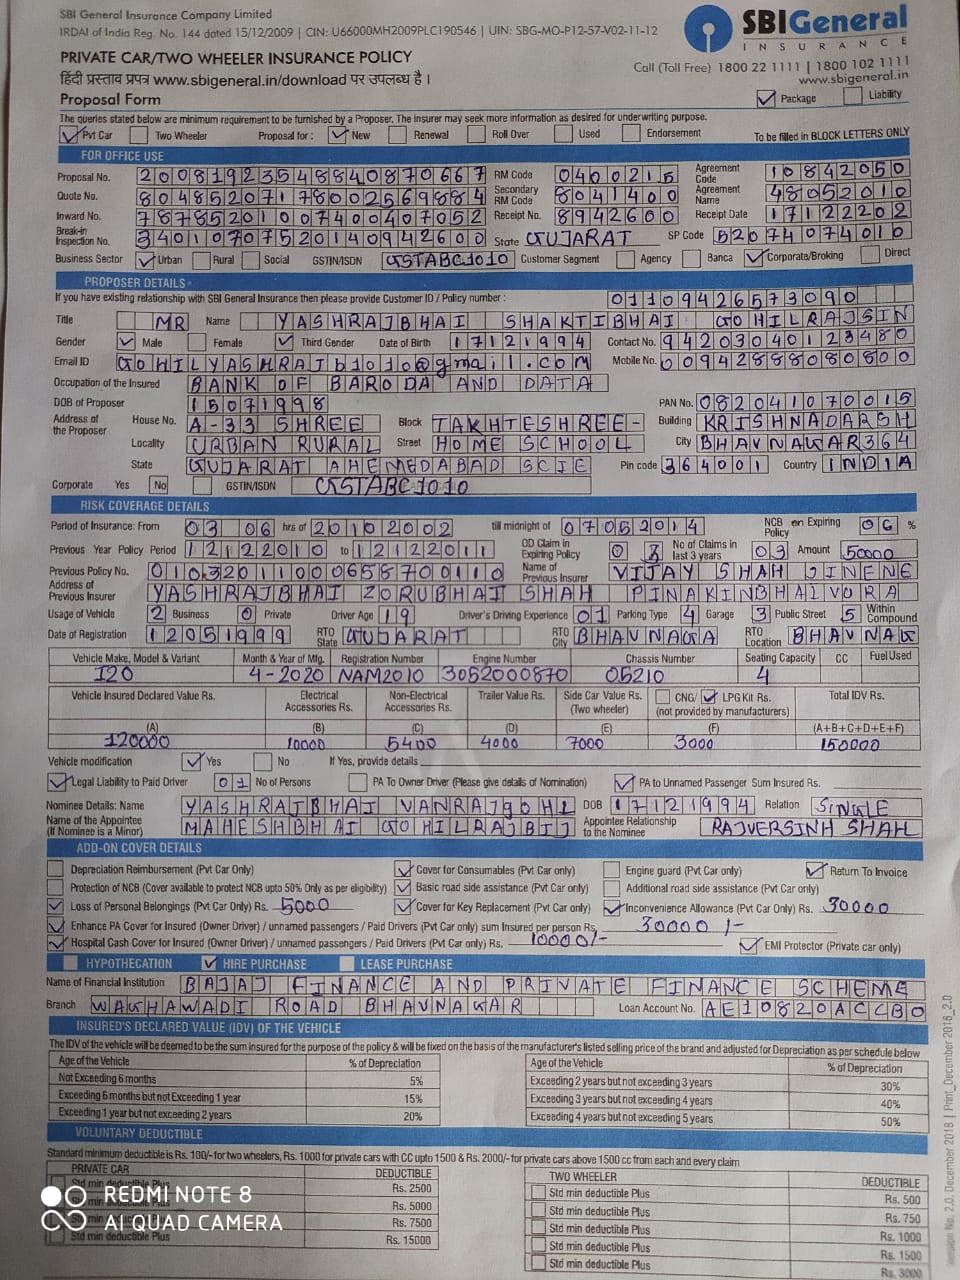 SBI General Insurance Company Limited
IRDAI of India Reg. No. 144 dated 15/12/2009 | CIN: U66000MH2009PLC190546 | UIN: SBG-MO-P12-57-V02-11-12
SBIGeneral
INSURANCE
PRIVATE CAR/TWO WHEELER INSURANCE POLICY
Call (Toll Free) 1800 22 1111 | 1800 102 1111
हिंदी प्रस्ताव प्रपत्र www.sbigeneral.in/download पर उपलब्ध है ।
www.sbigeneral.in
Proposal Form
Package Liability
The queries stated below are minimum requirement to be furnished by a Proposer. The insurer may seek more information as desired for underwriting purpose.
Pvt Car Two Wheeler Proposal for : New Renewal Roll Over Used Endorsement To be filled in BLOCK LETTERS ONLY
FOR OFFICE USE
Proposal No. 20081923548840870667 RM Code 0400215 Agreement Code 10842050
Quote No. 80485207178002569884 Secondary RM Code 8041400 Agreement Name 48052010
Inward No. 78785201007400407052 Receipt No. 8942600 Receipt Date 17122202
Break-in Inspection No. 34010707520140942600 State GUJARAT SP Code 52074074010
Business Sector Urban Rural Social GSTIN/ISDN GSTABC1010 Customer Segment Agency Banca Corporate/Broking Direct
PROPOSER DETAILS
If you have existing relationship with SBI General Insurance then please provide Customer ID / Policy number : 01109426573090
Title MR Name YASHRAJBHAI SHAKTIBHAI GOHILRAJSIN
Gender Male Female Third Gender Date of Birth 17121994 Contact No. 94203040123480
Email ID GOHILYASHRAJb1010@gmail.com Mobile No. 00942888080800
Occupation of the Insured BANK OF BARODA AND DATA
DOB of Proposer 15071998 PAN No. 082041070015
Address of the Proposer House No. A-33 SHREE Block TAKHTESHREE- Building KRISHNADARSH
Locality URBAN RURAL Street HOME SCHOOL City BHAVNAGAR364
State GUJARAT AHEMEDABAD SCIE Pin code 364001 Country INDIA
Corporate Yes No GSTIN/ISDN GSTABC1010
RISK COVERAGE DETAILS
Period of Insurance: From 03 06 hrs of 20102002 till midnight of 07052014 NCB on Expiring Policy 06 %
Previous Year Policy Period 12122010 to 12122011 OD Claim in Expiring Policy 0 3 No of Claims in last 3 years 03 Amount 50000
Previous Policy No. 01032011000658700110 Name of Previous Insurer VIJAY SHAH JINENE
Address of Previous Insurer YASHRAJBHAI ZORUBHAI SHAH PINAKINBHAI VORA
Usage of Vehicle 2 Business 0 Private Driver Age 19 Driver's Driving Experience 01 Parking Type 4 Garage 3 Public Street 5 Within Compound
Date of Registration 12051999 RTO State GUJARAT RTO City BHAVNAGA RTO Location BHAVNAG
Vehicle Make, Model & Variant Month & Year of Mfg. Registration Number Engine Number Chassis Number Seating Capacity CC Fuel Used
I20 4-2020 NAM2010 3052000870 05210 4
Vehicle Insured Declared Value Rs. Electrical Accessories Rs. Non-Electrical Accessories Rs. Trailer Value Rs. Side Car Value Rs. (Two wheeler) CNG/ LPG Kit Rs. (not provided by manufacturers) Total IDV Rs.
(A) (B) (C) (D) (E) (F) (A+B+C+D+E+F)
120000 10000 5400 4000 7000 3000 150000
Vehicle modification Yes No If Yes, provide details
Legal Liability to Paid Driver 01 No of Persons PA To Owner Driver (Please give details of Nomination) PA to Unnamed Passenger Sum Insured Rs.
Nominee Details: Name YASHRAJBHAI VANRAJGOHL DOB 17121994 Relation SINGLE
Name of the Appointee (If Nominee is a Minor) MAHESHBHAI GOHILRAJBIJ Appointee Relationship to the Nominee RAJVERSINH SHAH
ADD-ON COVER DETAILS
Depreciation Reimbursement (Pvt Car Only) Cover for Consumables (Pvt Car only) Engine guard (Pvt Car only) Return To Invoice
Protection of NCB (Cover available to protect NCB upto 50% Only as per eligibility) Basic road side assistance (Pvt Car only) Additional road side assistance (Pvt Car only)
Loss of Personal Belongings (Pvt Car Only) Rs. 5000 Cover for Key Replacement (Pvt Car only) Inconvenience Allowance (Pvt Car Only) Rs. 30000
Enhance PA Cover for Insured (Owner Driver) / unnamed passengers / Paid Drivers (Pvt Car only) sum Insured per person Rs. 30000 /-
Hospital Cash Cover for Insured (Owner Driver) / unnamed passengers / Paid Drivers (Pvt Car Only) Rs. 10000/- EMI Protector (Private car only)
HYPOTHECATION HIRE PURCHASE LEASE PURCHASE
Name of Financial Institution BAJAJ FINANCE AND PRIVATE FINANCE SCHEME
Branch WAGHAWADI ROAD BHAVNAGAR Loan Account No. AE10820ACCBO
INSURED'S DECLARED VALUE (IDV) OF THE VEHICLE
The IDV of the vehicle will be deemed to be the sum insured for the purpose of the policy & will be fixed on the basis of the manufacturer's listed selling price of the brand and adjusted for Depreciation as per schedule below
Age of the Vehicle % of Depreciation Age of the Vehicle % of Depreciation
Not Exceeding 6 months 5% Exceeding 2 years but not exceeding 3 years 30%
Exceeding 6 months but not Exceeding 1 year 15% Exceeding 3 years but not exceeding 4 years 40%
Exceeding 1 year but not exceeding 2 years 20% Exceeding 4 years but not exceeding 5 years 50%
VOLUNTARY DEDUCTIBLE
Standard minimum deductible is Rs. 100/-for two wheelers, Rs. 1000 for private cars with CC upto 1500 & Rs. 2000/- for private cars above 1500 cc from each and every claim
PRIVATE CAR DEDUCTIBLE TWO WHEELER DEDUCTIBLE
Std min deductible Plus Rs. 2500 Std min deductible Plus Rs. 500
Rs. 5000 Std min deductible Plus Rs. 750
Rs. 7500 Std min deductible Plus Rs. 1000
Std min deductible Plus Rs. 15000 Std min deductible Plus Rs. 1500
Std min deductible Plus Rs. 3000
REDMI NOTE 8
AI QUAD CAMERA
Version No. 2.0, December 2018 | Print_December 2018_2.0